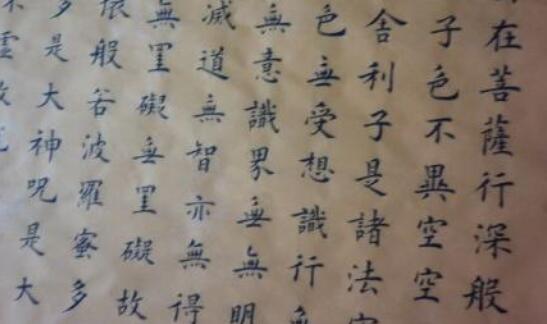 在菩薩行深般
子色不異空空
舍利子是諸法
色無受想識行無
無意識界無無明
滅道無智亦無得
無罣礙無罣礙故
依般若波羅蜜多
多是大神呪是大